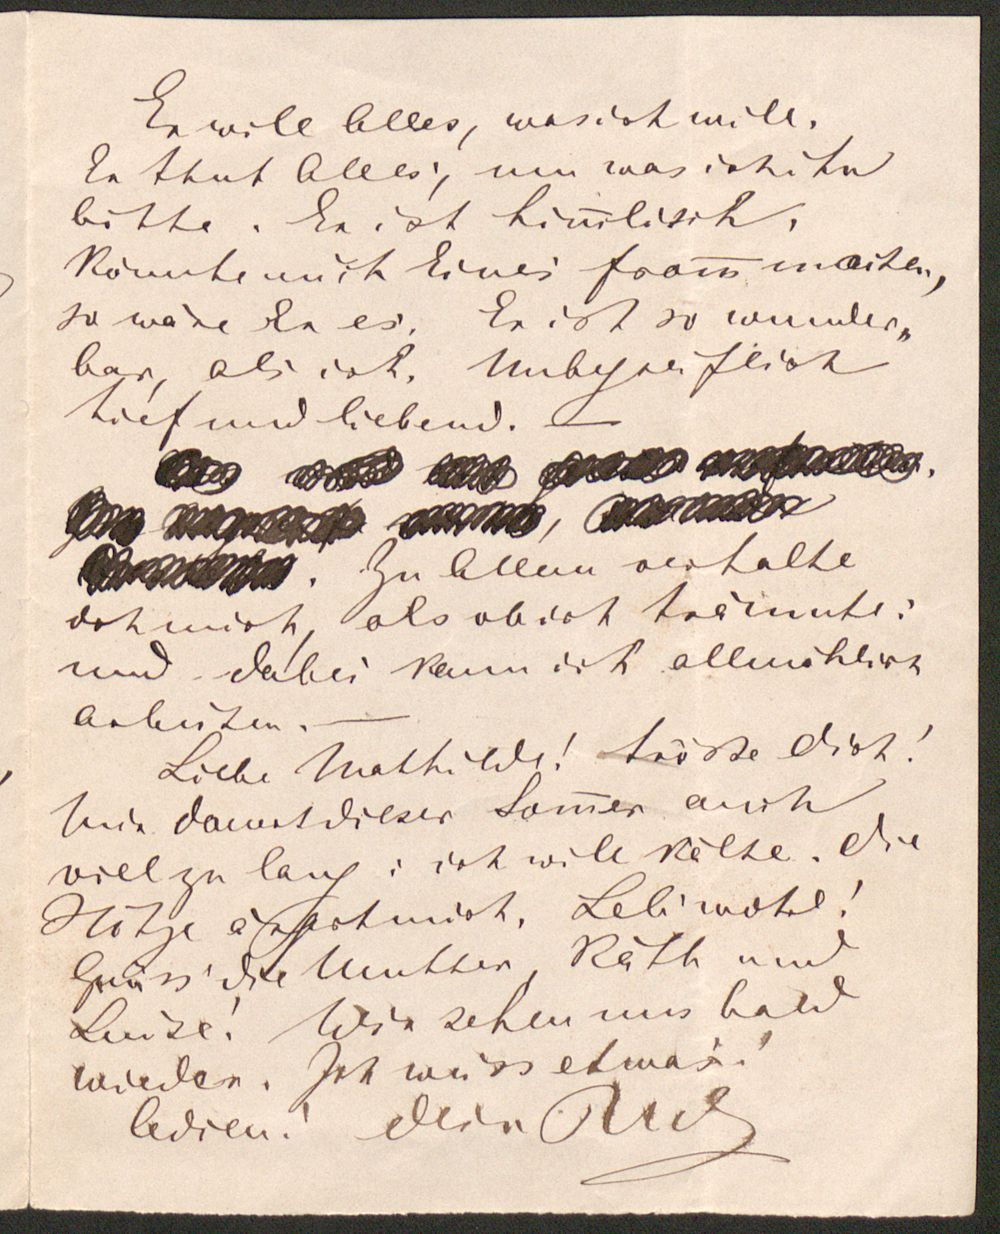 Er will Alles, was ich will.
Er thut Alles, um was ich ihn
bitte. Er ist him̅lisch.
Könnte mich Eines from̅ machen,
so wäre Er es. Er ist so wunder„
bar, als ich. Unbegreiflich
tief und liebend. —
. Zu Allem verhalte
ich mich, als ob ich träumte:
und dabei kann ich allmählich
arbeiten. —
Liebe Mathilde! tröste dich!
Mir dauert dieser Som̅er auch
viel zu lang: ich will Kälte. Die
Hitze ärgert mich. Leb' wohl!
Grüss' die Mutter, Käth und
Luise! Wir sehen uns bald
wieder. Ich weiss etwas!
Adieu! Dein